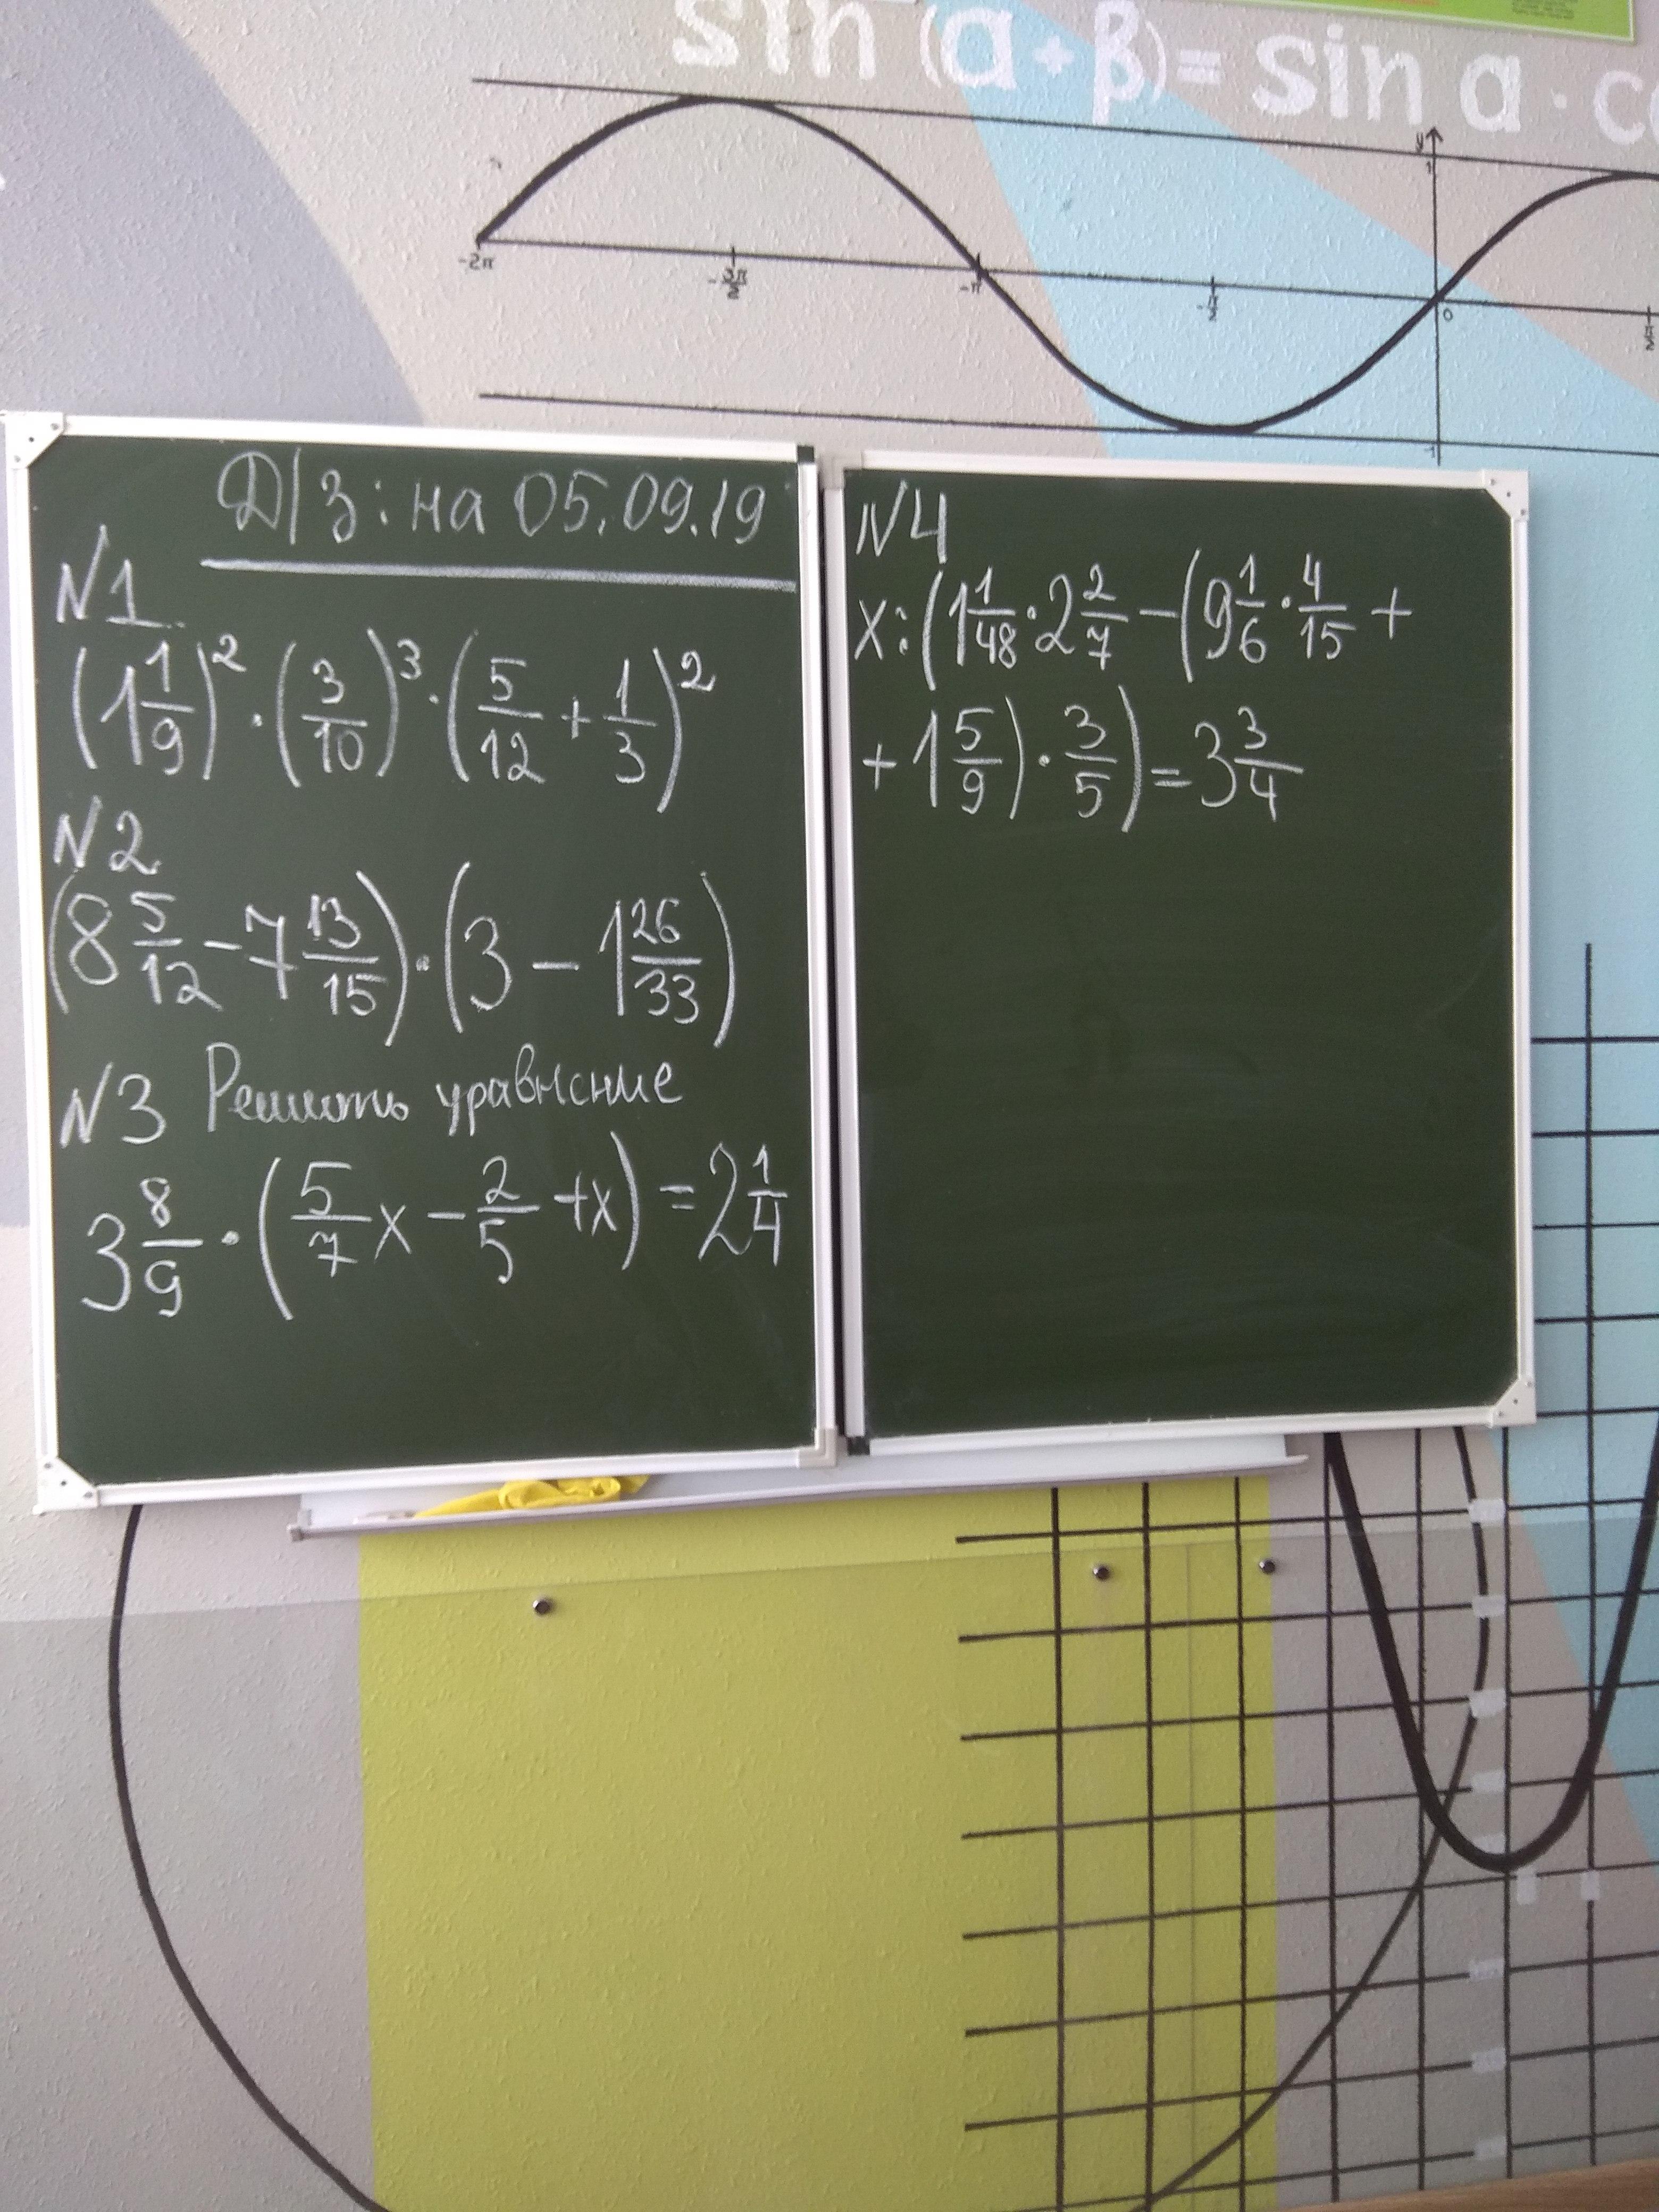 sin (α+β)= sin α · co
y
1
-2π -3π/2 -π -π/2 0 π/2
-1
Д/З: на 05.09.19
N1
(1 1/9)² · (3/10)³ · (5/12 + 1/3)²
N2
(8 5/12 - 7 13/15) · (3 - 1 26/33)
N3 Решить уравнение
3 8/9 · (5/7 x - 2/5 + x) = 2 1/4
N4
x : (1 1/48 · 2 2/7 - (9 1/6 · 4/15 +
+ 1 5/9) · 3/5) = 3 3/4